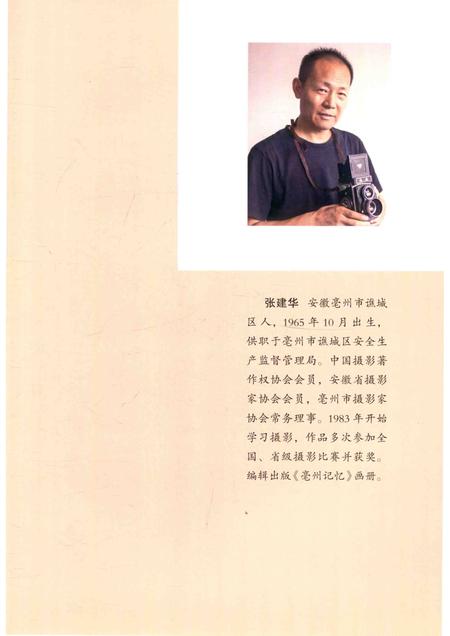 张建华 安徽亳州市谯城
区人，1965 年 10 月出生，
供职于亳州市谯城区安全生
产监督管理局。中国摄影著
作权协会会员，安徽省摄影
家协会会员，亳州市摄影家
协会常务理事。1983 年开始
学习摄影，作品多次参加全
国、省级摄影比赛并获奖。
编辑出版《亳州记忆》画册。